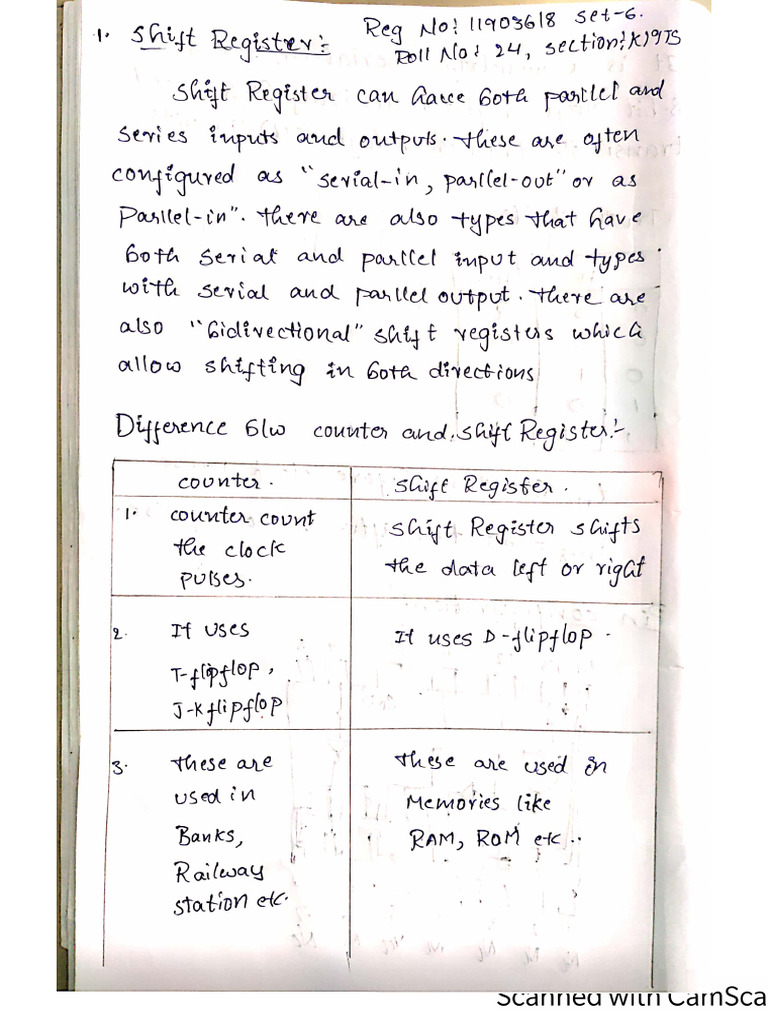 1. Shift Register:
Reg No: 11903618 Set-6.
Roll No: 24, section: K19TS
Shift Register can have both parllel and
series inputs and outputs. these are often
configured as "serial-in, parllel-out" or as
Parllel-in". there are also types that have
both serial and parllel input and types
with serial and parllel output. there are
also "bidirectional" shift registers which
allow shifting in both directions
Difference b/w counter and shift Register:-
counter. shift Register.
1. counter count shift Register shifts
the clock the data left or right
pulses.
2. It uses It uses D-flipflop.
T-flipflop,
J-K flipflop
3. these are these are used in
used in Memories like
Banks, RAM, ROM etc..
Railway
station etc.
Scanned with CamSca